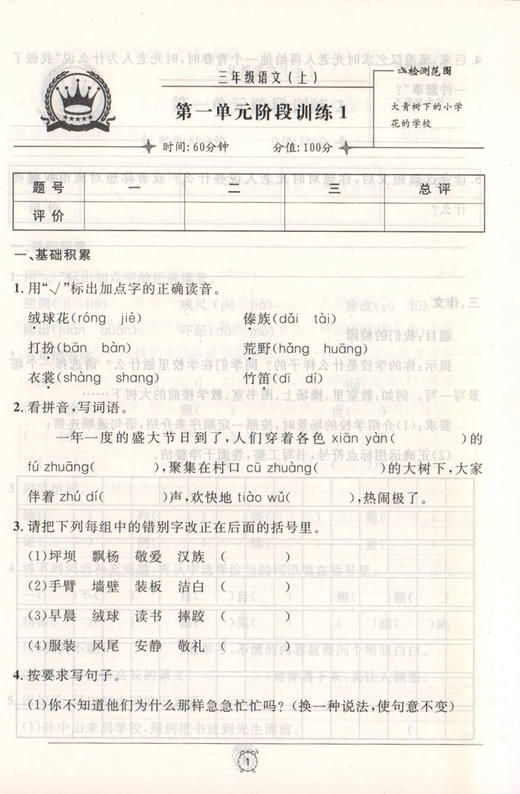 三年级语文(上)
第一单元阶段训练1
时间:60分钟 分值:100分
检测范围
大青树下的小学
花的学校
题号 一 二 三 总评
评价
一、基础积累
1. 用“√”标出加点字的正确读音。
绒球花(róng jiè) 傣族(dǎi tài)
打扮(bān bàn) 荒野(hāng huāng)
衣裳(shàng shang) 竹笛(dī dí)
2. 看拼音,写词语。
一年一度的盛大节日到了,人们穿着各色 xiān yàn( )的
fú zhuāng( ),聚集在村口 cū zhuàng( )的大树下,大家
伴着 zhú dí( )声,欢快地 tiào wǔ( ),热闹极了。
3. 请把下列每组中的错别字改正在后面的括号里。
(1)坪坝 飘杨 敬爱 汉族 ( )
(2)手臂 墙壁 装板 洁白 ( )
(3)早晨 绒球 读书 摔跤 ( )
(4)服装 凤尾 安静 敬礼 ( )
4. 按要求写句子。
(1)你不知道他们为什么那样急急忙忙吗?(换一种说法,使句意不变)
1